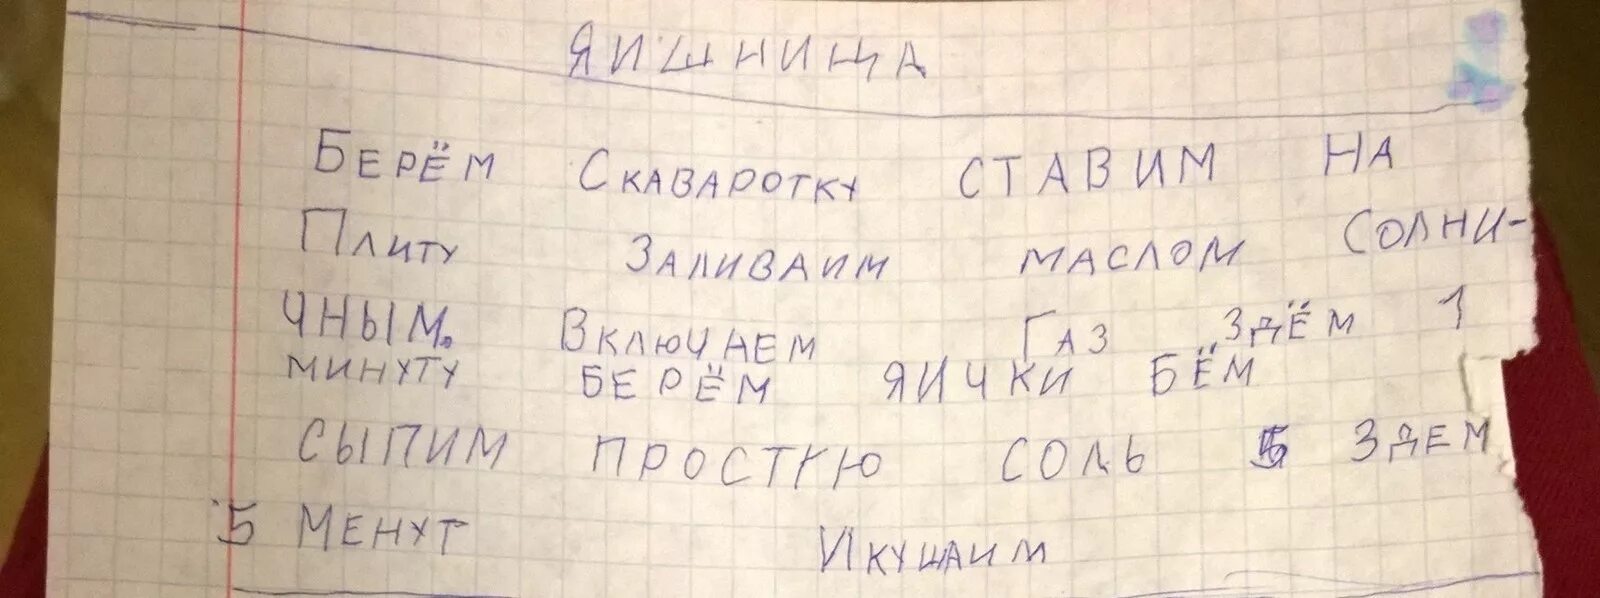 ЯИШНИЦА
БЕРЁМ СКАВАРОТКУ СТАВИМ НА
ПЛИТУ ЗАЛИВАИМ МАСЛОМ СОЛНИ-
ЧНЫМ. ВКЛЮЧАЕМ ГАЗ ЗДЁМ 1
МИНУТУ БЕРЁМ ЯИЧКИ БЁМ
СЫПИМ ПРОСТУЮ СОЛЬ ЗДЕМ
5 МЕНУТ И КУШАИМ